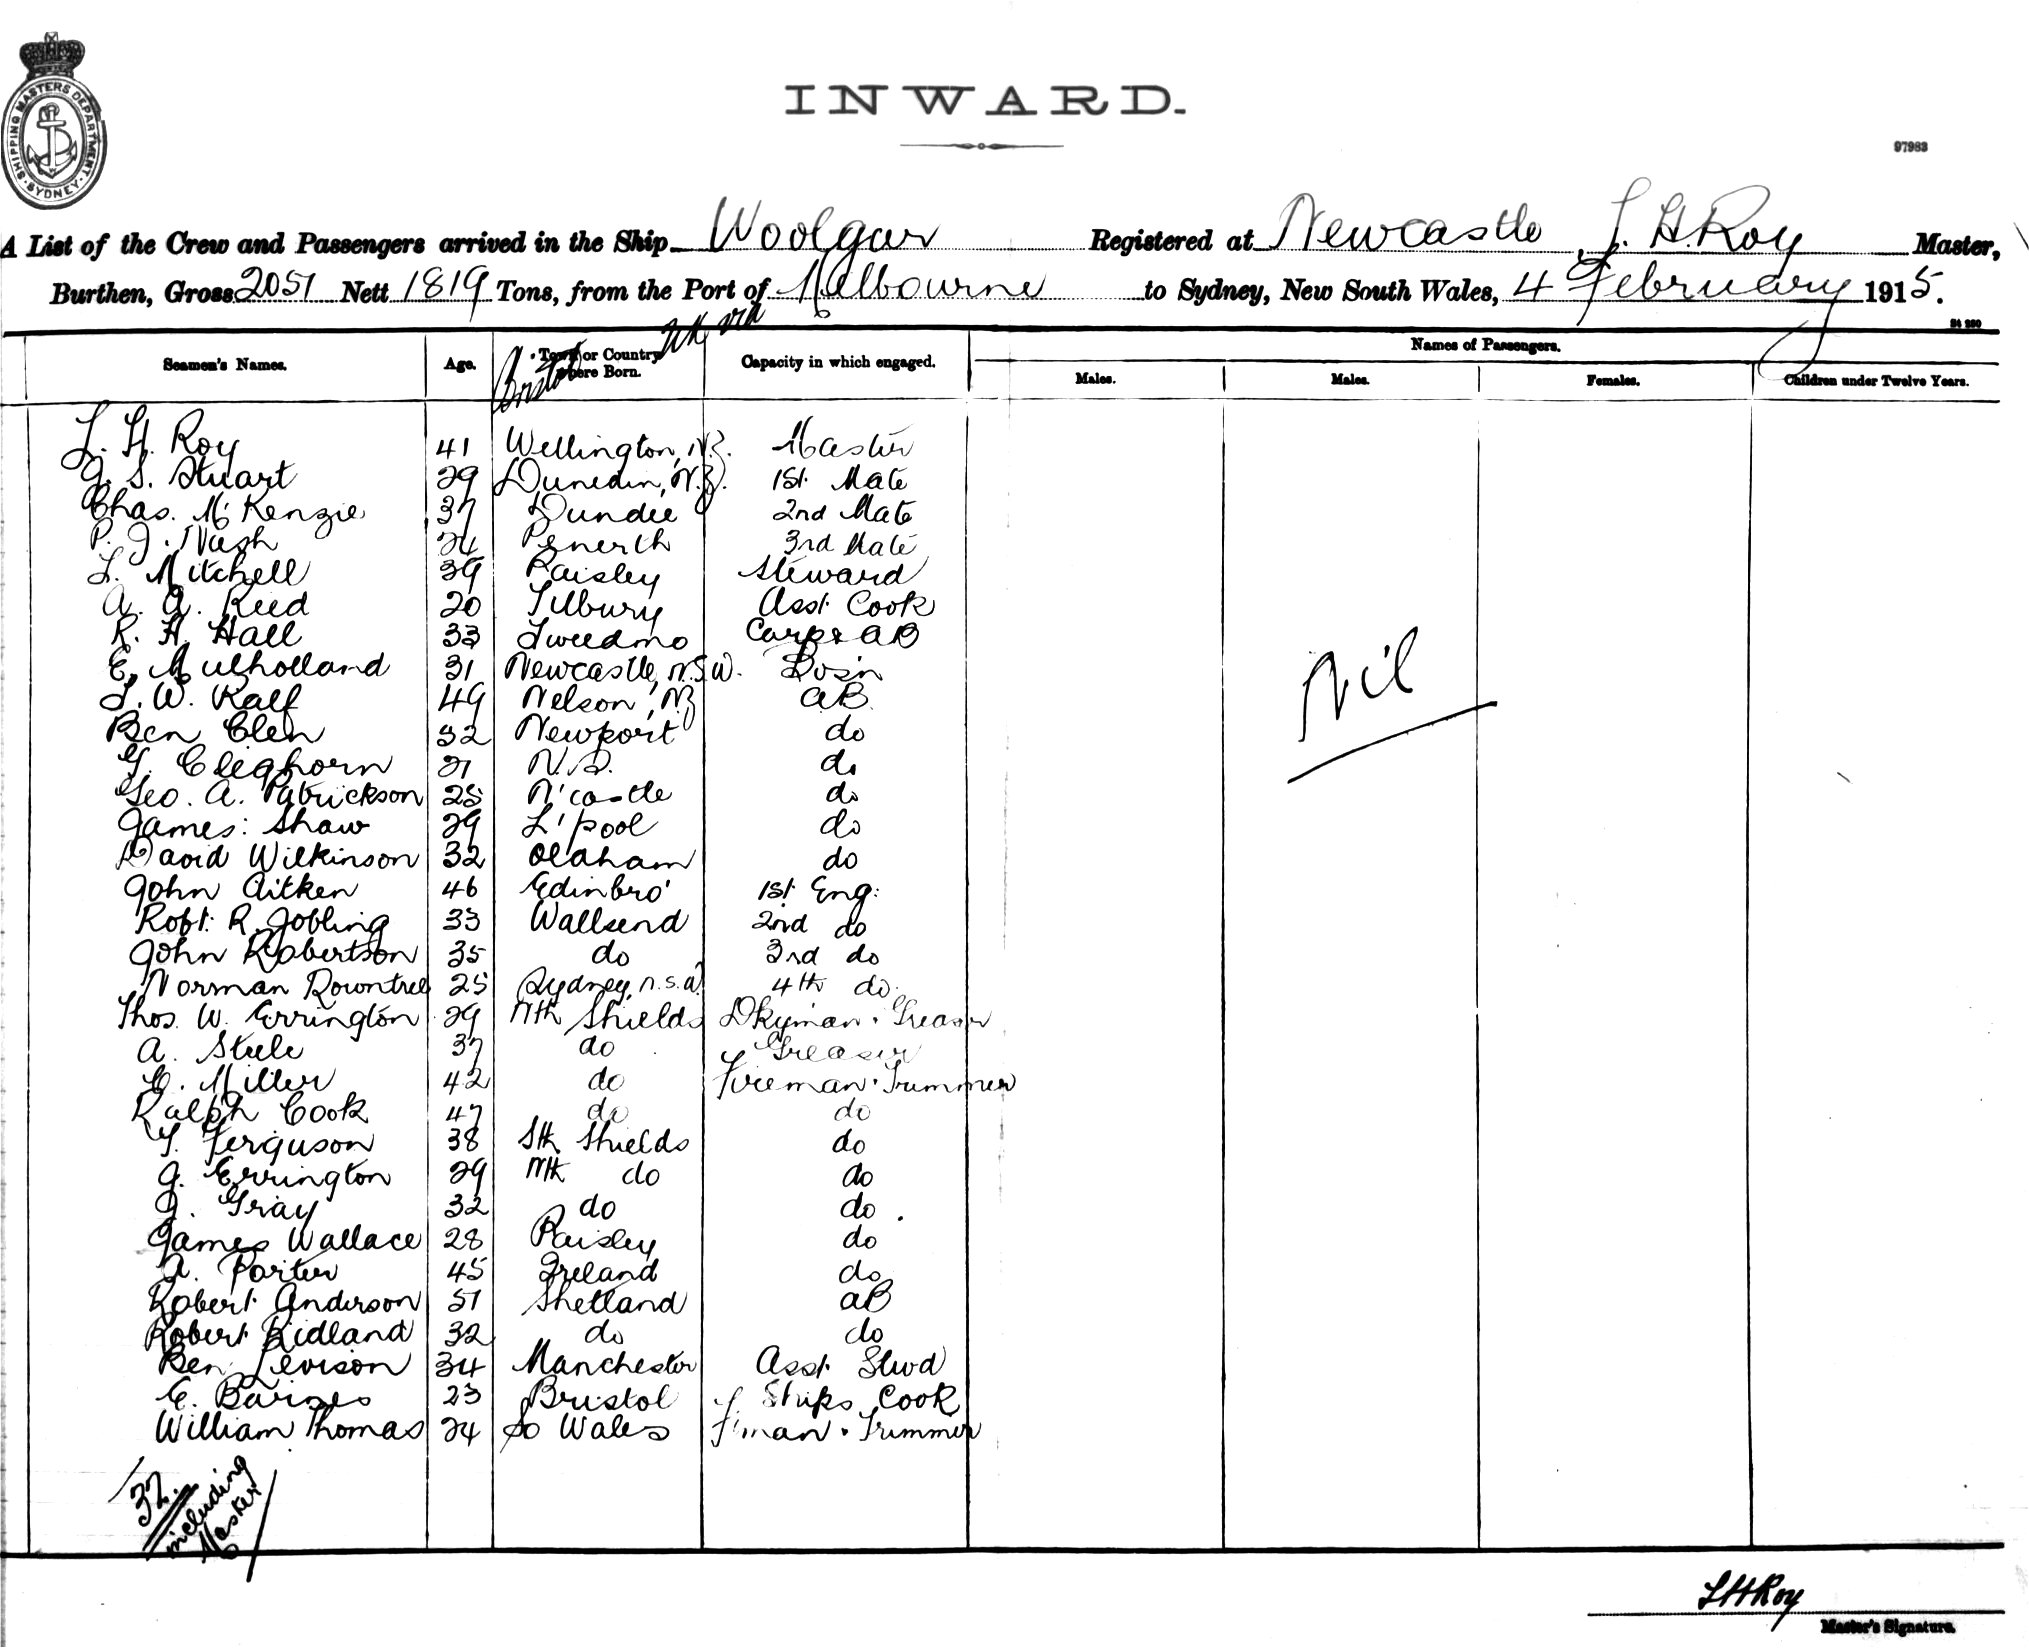 SHIPPING MASTERS DEPARTMENT. SYDNEY.
INWARD.
97983
A List of the Crew and Passengers arrived in the Ship Woolgar Registered at Newcastle, L. H. Roy Master,
Burthen, Gross 2051 Nett 1819 Tons, from the Port of Melbourne to Sydney, New South Wales, 4 February 1915.
Bristol via
Seamen's Names. Age. Town or Country where Born. Capacity in which engaged. Names of Passengers.
Males. Males. Females. Children under Twelve Years.
L. H. Roy 41 Wellington, N.Z. Master
G. S. Stuart 29 Dunedin, N.Z. 1st Mate
Chas. McKenzie 37 Dundee 2nd Mate
P. J. Nash 24 Penerth 3rd Mate
L. Mitchell 39 Paisley Steward
A. A. Reed 20 Tilbury Asst Cook
R. H. Hall 33 Tweedmo Carp & AB
E. Mulholland 31 Newcastle, N.S.W. Bos'n
L. W. Ralf 49 Nelson, NZ AB
Ben Clen 32 Newport do
G. Cleghorn 21 N.S. do
Geo. A. Patrickson 25 N'castle do
James Shaw 29 L'pool do
David Wilkinson 32 Oldham do
John Aitken 46 Edinbro' 1st Eng:
Robt. R. Jobling 33 Wallsend 2nd do
John Robertson 35 do 3rd do
Norman Rowntree 25 Sydney, N.S.W. 4th do
Thos. W. Errington 29 Nth Shields Dkyman & Greaser
A. Steele 37 do Greaser
C. Miller 42 do Fireman & Trimmer
Ralph Cook 47 do do
T. Ferguson 38 Sth Shields do
J. Errington 29 Nth do do
J. Gray 32 do do
James Wallace 28 Paisley do
A. Porter 45 Ireland do
Robert Anderson 51 Shetland AB
Robert Ridland 32 do do
Ben Levison 34 Manchester Asst Stwd
E. Barnes 23 Bristol Ships Cook
William Thomas 24 So Wales F'man & Trimmer
Nil
32 including Master
L H Roy
Master's Signature.